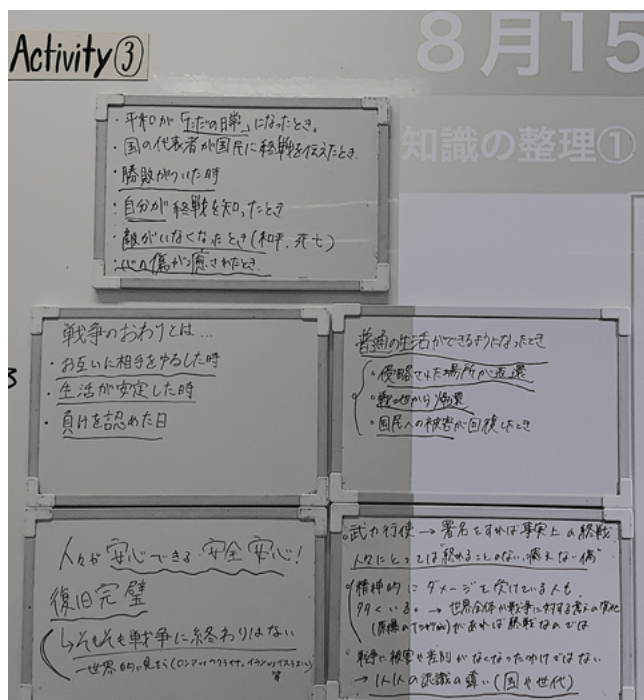 Activity③
8月15
知識の整理①
・平和が「ただの日常」になったとき。
・国の代表者が国民に終戦を伝えたとき
・勝敗がついた時
・自分が終戦を知ったとき
・敵がいなくなったとき(和平、死亡)
・心の傷が癒されたとき.
戦争のおわりとは…
・お互いに相手をゆるした時
・生活が安定した時
・負けを認めた日
普通の生活ができるようになったとき
・侵略された場所が返還
・戦地から帰還
・国民への被害が回復したとき
人々が安心できる.安全安心!
復旧完璧
↳そもそも戦争に終わりはない
世界的に見たら(ロシアvsウクライナ,イランvsイスラエル)
等
・武力行使→署名をすれば事実上の終戦
人々にとっては"終わることのない、癒えない傷"
・精神的にダメージを受けている人も
多くいる。→世界全体が戦争に対する考えの変化
があれば終戦なのでは
・戦争に被害や差別がなくなったわけではない
→1人1人の認識の違い(国や世代)